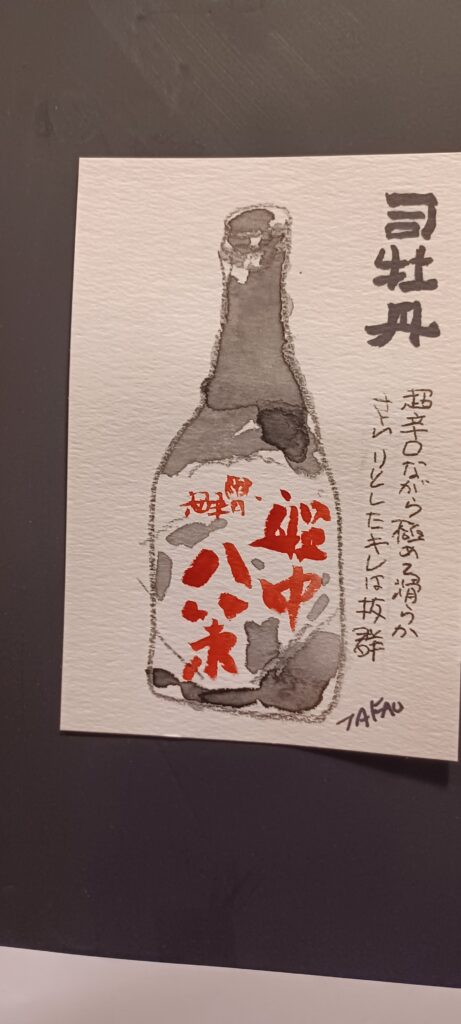 司牡丹
超辛口ながら極めて滑らか
さらりとしたキレは抜群
船中
八策
TAKAO